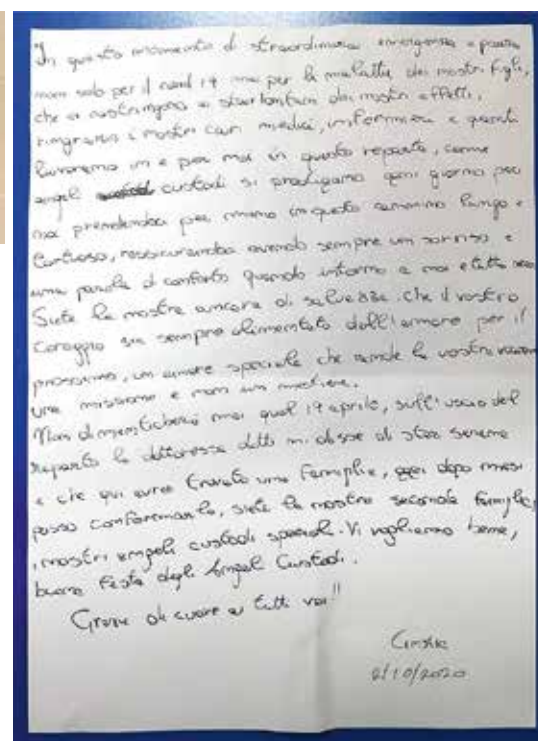 In questo momento di straordinaria emergenza e paura
non solo per il covid 19 ma per la malattia dei nostri figli,
che ci costringono a star lontani dai nostri affetti,
ringrazio i nostri cari medici, infermiere e quanti
lavorano in e per noi in questo reparto, come
angeli custodi si prodigano ogni giorno per
noi prendendoci per mano in questo cammino lungo e
tortuoso, rassicurandoci avendo sempre un sorriso e
una parola di conforto quando intorno a noi è tutto nero
Siete la nostra ancora di salvezza che il vostro
coraggio sia sempre alimentato dall'amore per il
prossimo, un amore speciale che rende la vostra
una missione e non un mestiere.
Non dimenticherò mai quel 17 aprile, sull'uscio del
reparto la dottoressa mi disse di star serena
e che qui avrei trovato una famiglia, oggi dopo mesi
posso confermarlo, siete la nostra seconda famiglia,
i nostri angeli custodi speciali. Vi vogliamo bene,
buona festa degli Angeli Custodi.
Grazie di cuore a tutti voi!!
2/10/2020